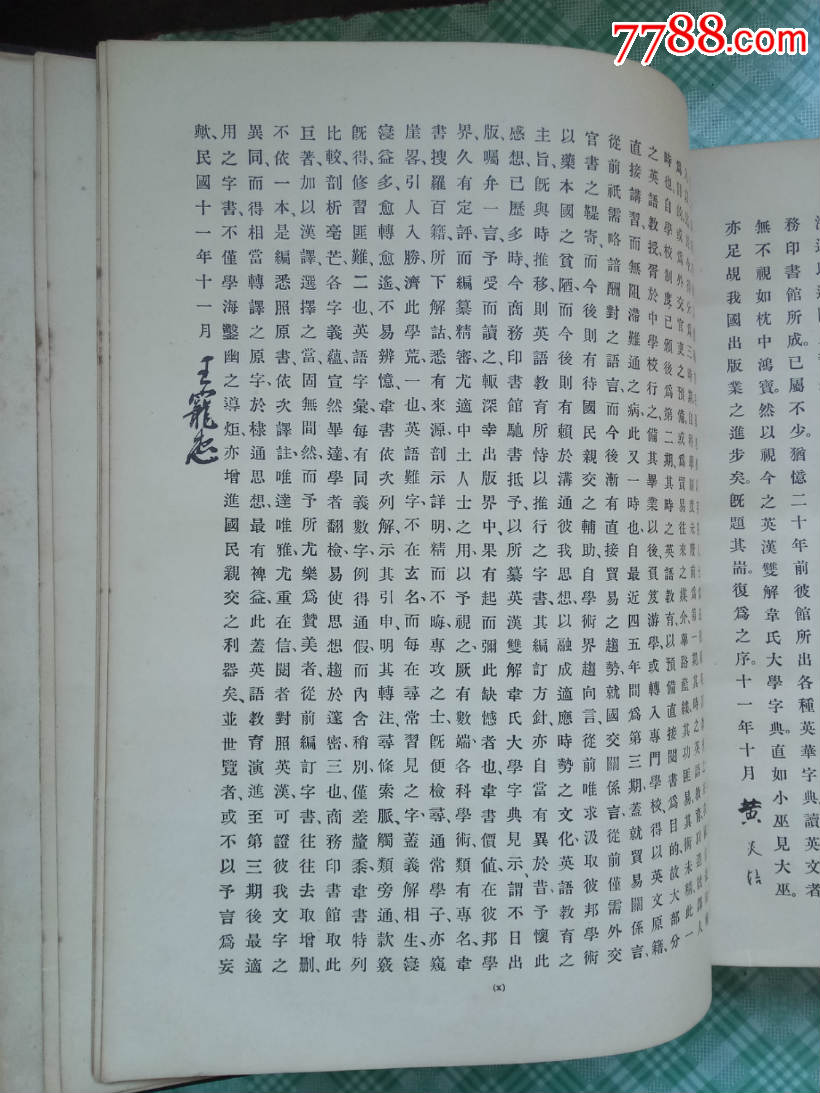 7788.com
務印書館所成已屬不少。猶憶二十年前彼館所出各種英華字典。讀英文者
無不視如枕中鴻寶。然以視今之英漢雙解韋氏大學字典。直如小巫見大巫。
亦足覘我國出版業之進步矣。旣題其耑。復爲之序。十一年十月
時也、自學校制度已頒後、爲第二期、其時之英語教育、以預備直接閱書爲目的、故大部分
之英語教授、胥於中學校行之、備其畢業以後、負笈游學、或轉入專門學校、得以英文原籍、
直接講習、而無阻滯難通之病、此又一時也、自最近四五年間、爲第三期、蓋就貿易關係言、
從前祇需略諳酬對之語言、而今後漸有直接貿易之趨勢、就國交關係言、從前僅需外交
官書之鞮寄、而今後則有待國民親交之輔助、自學術界趨向言、從前唯求汲取彼邦學術
以藥本國之貧陋、而今後則有賴於溝通彼我思想、以融成適應時勢之文化、英語教育之
主旨、旣與時推移、則英語教育所恃以推行之字書、其編訂方針、亦自當有異於昔、予懷此
感想、已歷多時、今商務印書館馳書抵予、以所纂英漢雙解韋氏大學字典見示、謂不日出
版、囑弁一言、予受而讀之、輒深幸出版界中、果有起而彌此缺憾者也、韋書價値、在彼邦學
界久有定評、而編纂精審、尤適中土人士之用、以予視之、厥有數端、各科學術、類有專名、韋
書搜羅百籍、所下解詁、悉有來源、剖示詳明、精而不晦、專攻之士、旣便檢尋、通常學子、亦窺
崖畧、引人入勝、濟此學荒、一也、英語難字、不在玄名、而每在尋常習見之字、蓋義解相生、寖
寖益多、愈轉愈遙、不易辨憶、韋書依次列解、示其引申、明其轉注、尋條索脈、觸類旁通、款竅
旣得、修習匪難、二也、英語字彙、每有同義數字、例得通假、而內含稍別、僅差釐黍、韋書特列
比較、剖析毫芒、各字義蘊、宣然畢達、學者翻檢、易使思想趨於邃密、三也、商務印書館取此
巨著、加以漢譯、選擇之當、固無間然、而予所尤樂爲贊美者、從前編訂字書、往往去取增删、
不依一本、是編悉照原書、依次譯註、唯達唯雅、尤重在信、閱者對照英漢、可證彼我文字之
異同、而得相當轉譯之原字、於棣通思想、最有裨益、此蓋英語教育演進至第三期後、最適
用之字書、不僅學海鑿幽之導炬、亦增進國民親交之利器矣、並世覽者、或不以予言爲妄
歟、民國十一年十一月
王寵惠
(x)